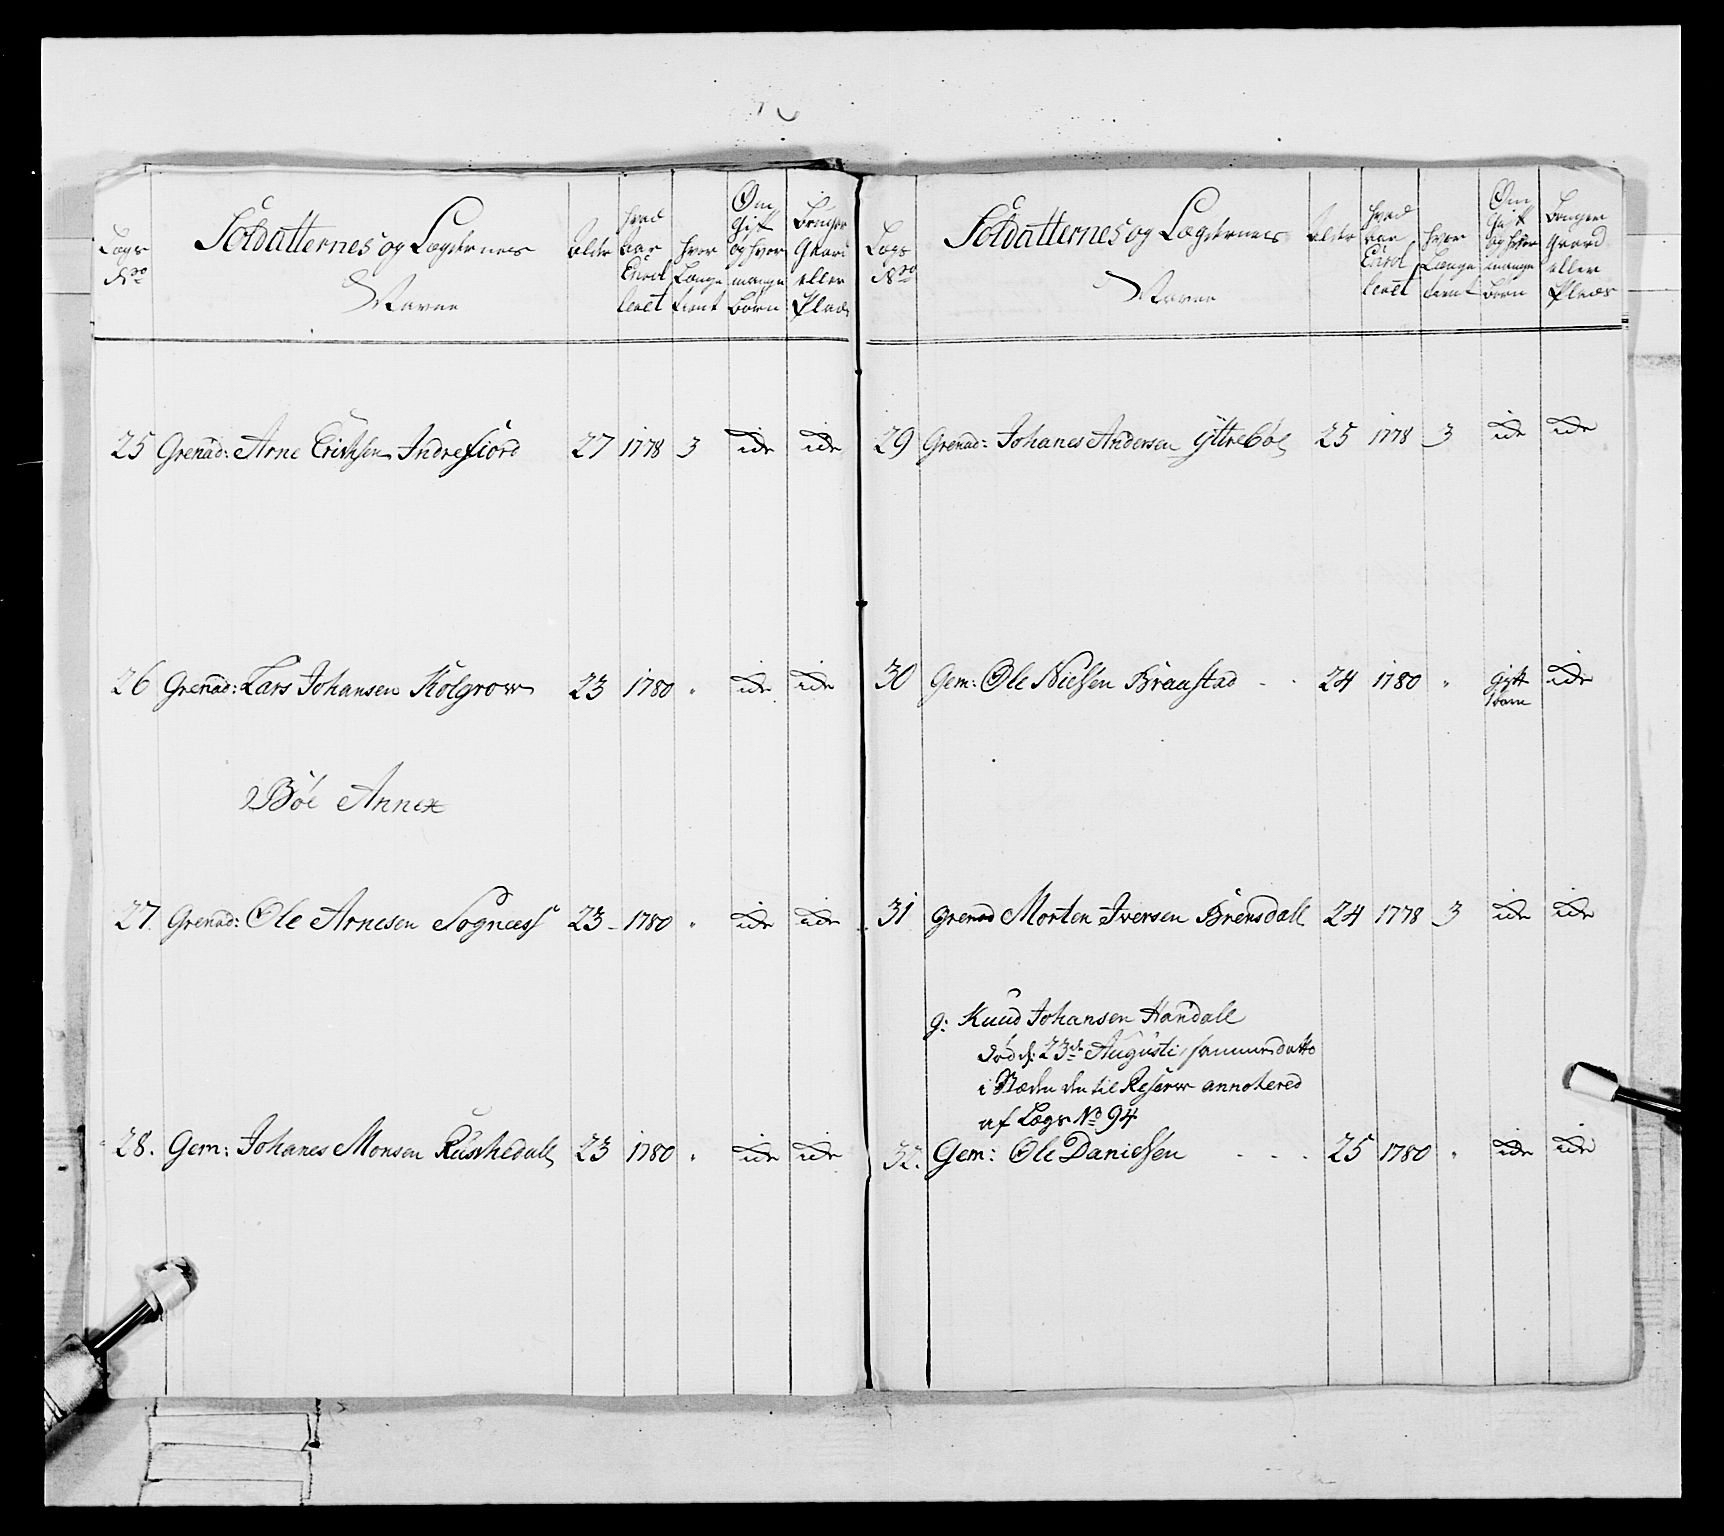 Lægs No
Soldatternes og Lægdernes Navne
Alder
hvad aar Enrolleret
hvor Længe tient
Om Gift og hvor mange Børn
Bruger Gaard eller Plads
25 Grenad: Arne Erichsen Indrefiord 27 1778 3 ide ide
26 Grenad: Lars Johansen Kolgrow 23 1780 " ide ide
Böe Annex
27 Grenad: Ole Arnesen Sognæss 23 - 1780 " ide ide
28. Gem: Johanes Monsen Risnhedall 23 1780 " ide ide
Lægs No
Soldatternes og Lægdernes Navne
Alder
hvad aar Enrolleret
hvor Længe tient
Om Gift og hvor mange Børn
Bruger Gaard eller Plads
29 Grenad: Johanes Andersen Yttrebøe 25 1778 3 ide ide
30 Gem: Ole Nielsen Braastad - - 24 1780 " gift 1 barn ide
31 Grenad Morten Iversen Brensdall 24 1778 3 ide ide
g: Knud Johansen Handall
død d: 23de Augusti, sammendatto
i Stæden den til Reserv annotered
af Lægs No 94
32. Gem: Ole Danielsen - - - 25 1780 " ide ide